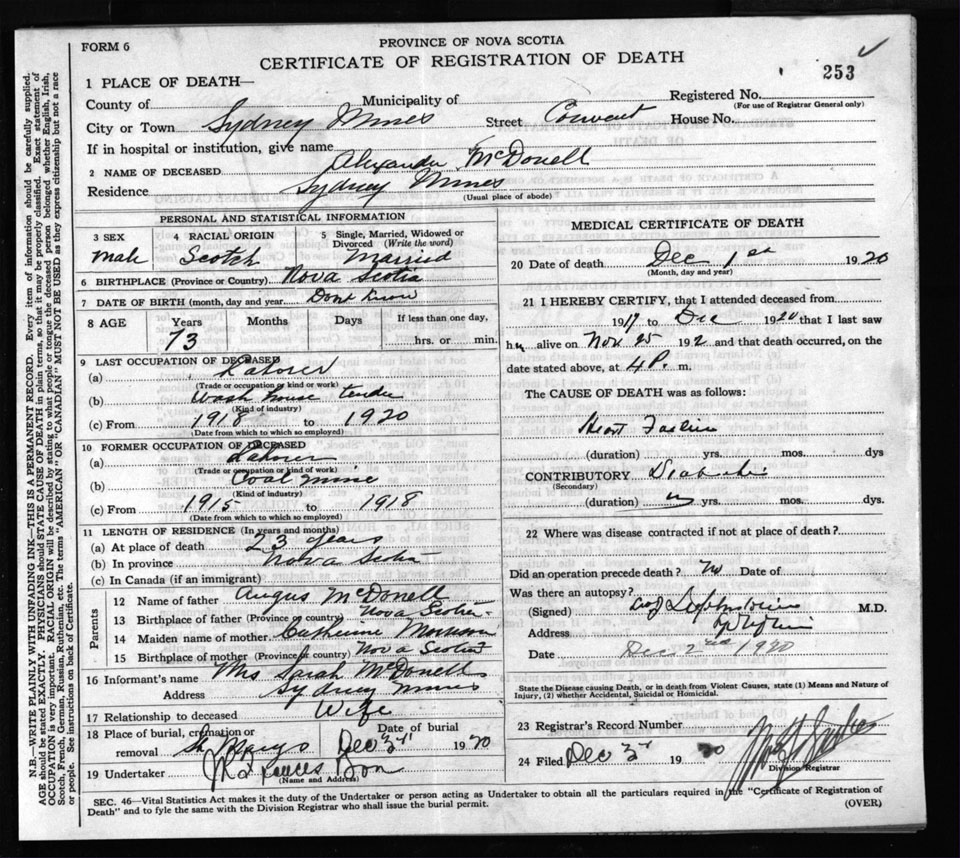 FORM 6
PROVINCE OF NOVA SCOTIA
CERTIFICATE OF REGISTRATION OF DEATH
253
1 PLACE OF DEATH—
County of
Municipality of
Registered No.
(For use of Registrar General only)
City or Town Sydney Mines Street Convent House No.
If in hospital or institution, give name
2 NAME OF DECEASED Alexander McDonell
Residence Sydney Mines
(Usual place of abode)
PERSONAL AND STATISTICAL INFORMATION
3 SEX
male
4 RACIAL ORIGIN
Scotch
5 Single, Married, Widowed or Divorced (Write the word)
Married
6 BIRTHPLACE (Province or Country) Nova Scotia
7 DATE OF BIRTH (month, day and year) Dont Know
8 AGE Years Months Days If less than one day,
73 hrs. or min.
9 LAST OCCUPATION OF DECEASED
(a) Laborer
(Trade or occupation or kind or work)
(b) Wash house tender
(Kind of industry)
(c) From 1918 to 1920
(Date from which to which so employed)
10 FORMER OCCUPATION OF DECEASED
(a) Laborer
(Trade or occupation or kind of work)
(b) Coal mine
(Kind of industry)
(c) From 1915 to 1918
(Date from which to which so employed)
11 LENGTH OF RESIDENCE (In years and months)
(a) At place of death 23 years
(b) In province Nova Scotia
(c) In Canada (if an immigrant)
Parents
12 Name of father Angus McDonell
13 Birthplace of father (Province or country) Nova Scotia
14 Maiden name of mother Catherine Morrison
15 Birthplace of mother (Province or country) Nova Scotia
16 Informant's name Mrs Sarah McDonell
Address Sydney Mines
17 Relationship to deceased Wife
18 Place of burial, cremation or removal St Marys
Date of burial Dec 3rd 1920
19 Undertaker
(Name and Address)
MEDICAL CERTIFICATE OF DEATH
20 Date of death Dec 1st 1920
(Month, day and year)
21 I HEREBY CERTIFY, that I attended deceased from
1917 to Dec 1920 that I last saw
him alive on Nov 25 192 and that death occurred, on the
date stated above, at 4 P. m.
The CAUSE OF DEATH was as follows:
Heart Failure
(duration) yrs. mos. dys
CONTRIBUTORY Diabetes
(Secondary)
(duration) yrs. mos. dys.
22 Where was disease contracted if not at place of death?
Did an operation precede death? No Date of
Was there an autopsy?
(Signed) M.D.
Address
Date Dec 2nd 1920
State the Disease causing Death, or in death from Violent Causes, state (1) Means and Nature of Injury, (2) whether Accidental, Suicidal or Homicidal.
23 Registrar's Record Number
24 Filed Dec 3rd 1920
Division Registrar
SEC. 46—Vital Statistics Act makes it the duty of the Undertaker or person acting as Undertaker to obtain all the particulars required in the "Certificate of Registration of
Death" and to fyle the same with the Division Registrar who shall issue the burial permit.
(OVER)
N.B.—WRITE PLAINLY WITH UNFADING INK—THIS IS A PERMANENT RECORD. Every item of information should be carefully supplied.
AGE should be stated EXACTLY. PHYSICIANS should STATE CAUSE OF DEATH in plain terms, so that it may be properly classified. Exact statement of
OCCUPATION is very important. RACIAL ORIGIN will be described by stating to what people or tongue the deceased person belonged whether English, Irish,
Scotch, French, German, Russian, Ruthenian, etc. The terms "AMERICAN" OR "CANADIAN" MUST NOT BE USED as they express citizenship but not a race
or people. See instructions on back of Certificate.